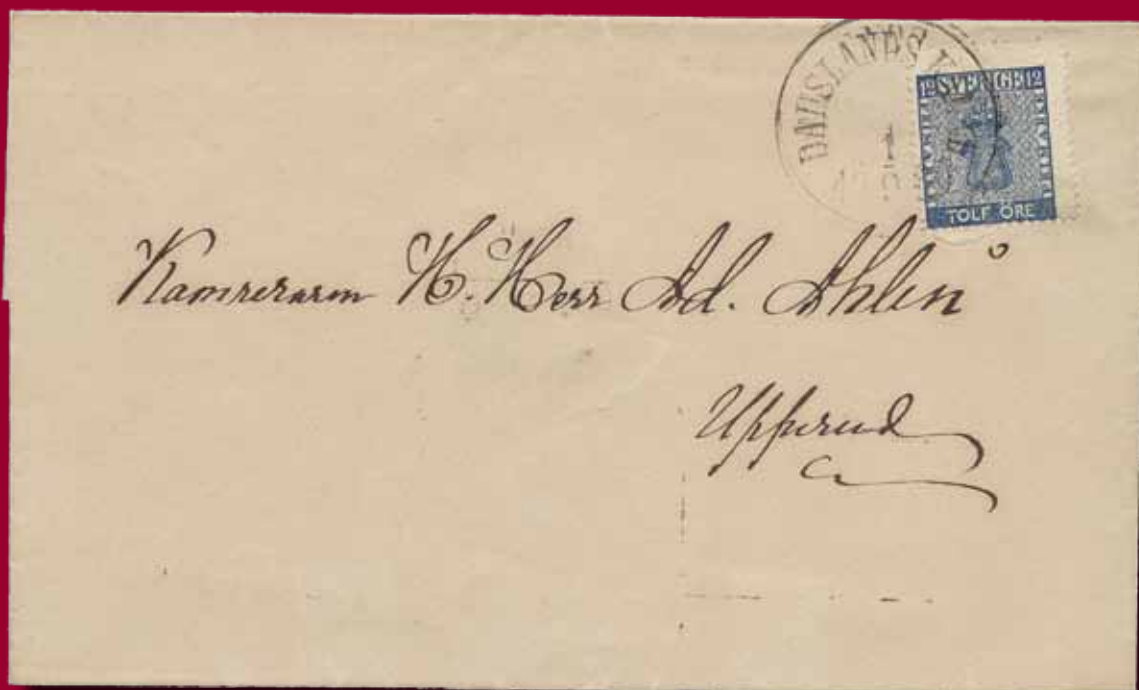 DALSLANDS
12 SVERIGE 12
TOLF ÖRE
Kamreraren H. Herr Ad. Ahlin
Upperud